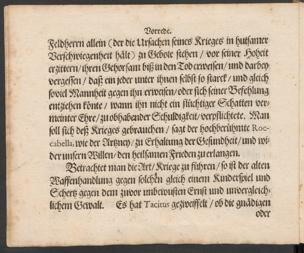 Vorrede.
Feldherrn allein (der die Ursachen seines Krieges in hutsamer
Verschwiegenheit hält) zu Gebote stehen / vor seiner Hoheit
erzittern / ihren Gehorsam biß in den Tod erweisen / und darbey
vergessen / daß ein jeder unter ihnen selbst so starck / und gleich
soviel Mannheit gegen ihn erweisen / oder sich seiner Befehlung
entziehen könte / wann ihn nicht ein flüchtiger Schatten ver-
meinter Ehre / zu obhabender Schuldigkeit / verpflichtete. Man
soll sich deß Krieges gebrauchen / sagt der hochberühmte Roc-
cabella, wie der Artzney / zu Erhaltung der Gesundheit / und wi-
der unsern Willen / den heilsamen Frieden zu erlangen.
Betrachtet man die Art / Kriege zu führen / so ist der alten
Waffenhandlung gegen solchen gleich einem Kinderspiel und
Schertz gegen dem zuvor unbewusten Ernst und unvergleich-
lichem Gewalt. Es hat Tacitus gezweiffelt / ob die gnädigen
oder